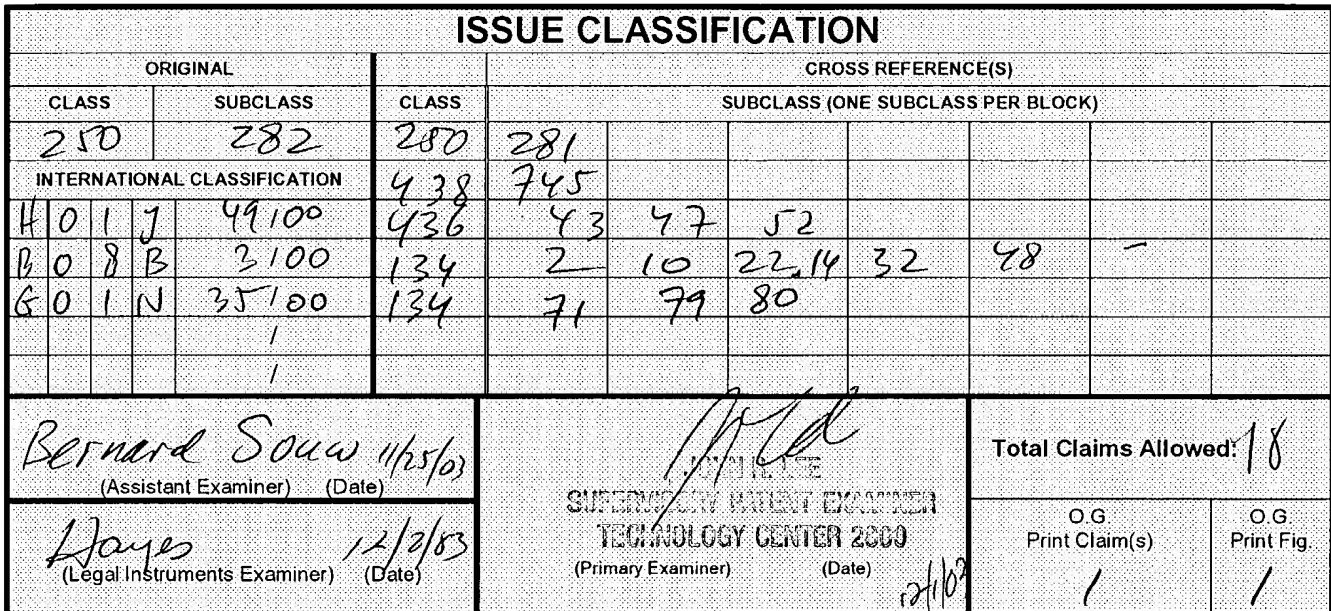 ISSUE CLASSIFICATION
ORIGINAL CROSS REFERENCE(S)
CLASS SUBCLASS CLASS SUBCLASS (ONE SUBCLASS PER BLOCK)
250 282 250 281
INTERNATIONAL CLASSIFICATION 438 745
H 0 1 J 49/00 436 43 47 52
B 0 8 B 3/00 134 2 10 22.14 32 48 -
G 0 1 N 35/00 134 71 79 80
/
/
Bernard Souw 11/25/03
(Assistant Examiner) (Date)
Hayes
(Legal Instruments Examiner) (Date)
SUPERVISORY PATENT EXAMINER
TECHNOLOGY CENTER 2800
(Primary Examiner) (Date)
Total Claims Allowed: 18
O.G. Print Claim(s) O.G. Print Fig.
1 1